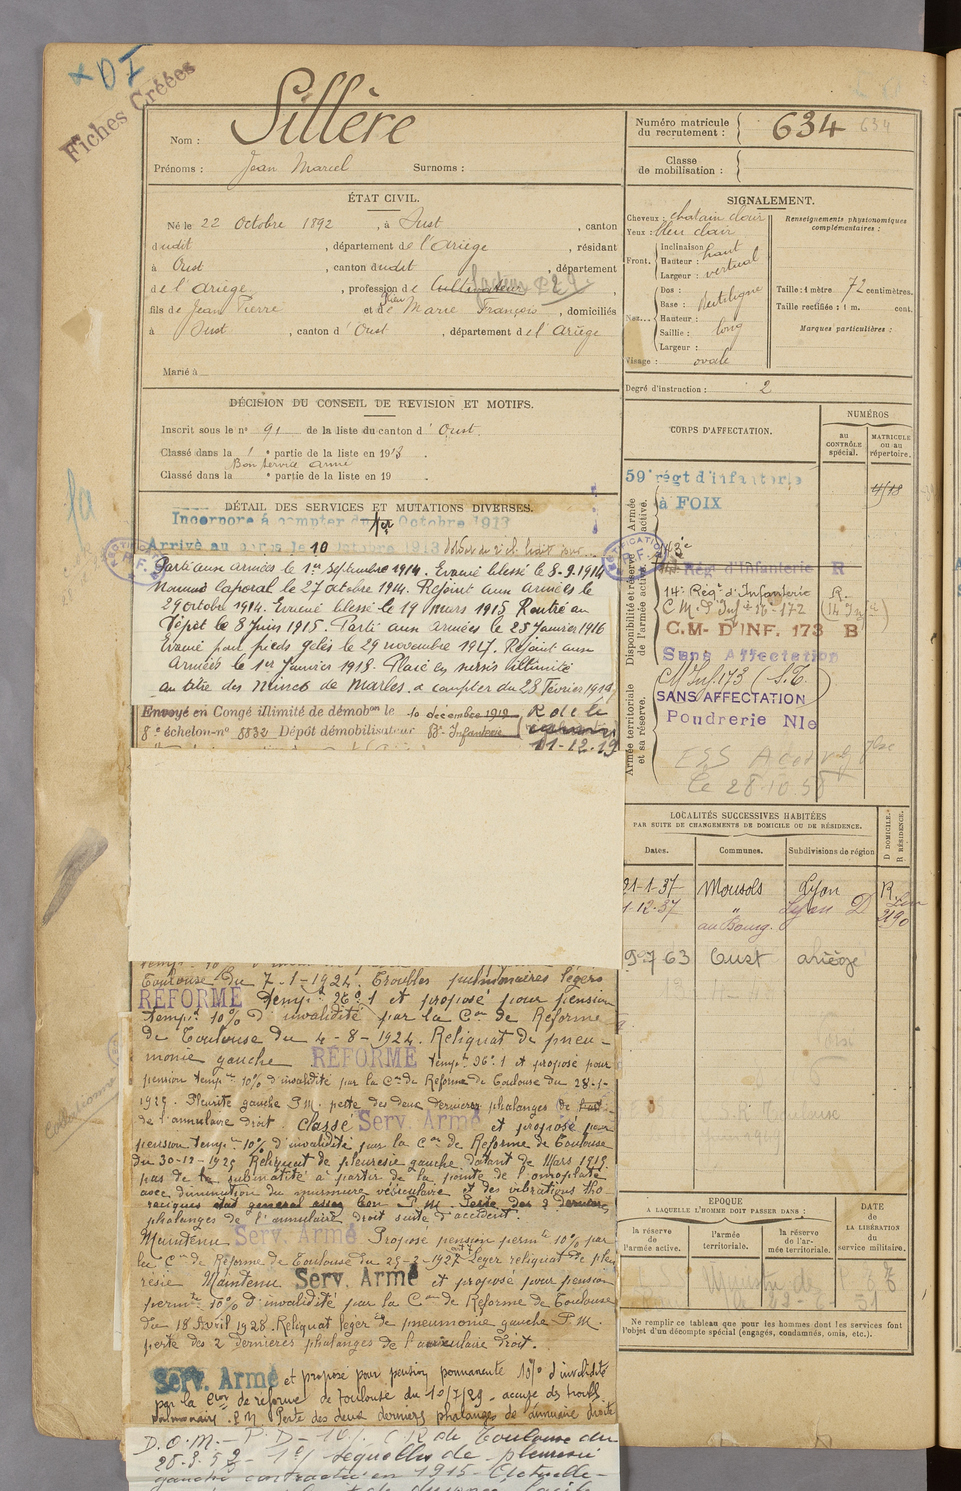 DI
Fiches Créées
Nom : Sillère
Prénoms : Jean Marcel Surnoms :
Numéro matricule du recrutement : 634
Classe de mobilisation :
ÉTAT CIVIL.
Né le 22 Octobre 1892, à Oust, canton
dudit, département de l'Ariège, résidant
à Oust, canton dudit, département
de l'Ariège, profession de Cultivateur
fils de Jean Pierre et de Marie François, domiciliés
à Oust, canton d'Oust, département de l'Ariège
Marié à
DÉCISION DU CONSEIL DE REVISION ET MOTIFS.
Inscrit sous le n° 91 de la liste du canton d'Oust.
Classé dans la 1e partie de la liste en 1913.
Bon service armé
Classé dans la e partie de la liste en 19 .
DÉTAIL DES SERVICES ET MUTATIONS DIVERSES.
Incorporé à compter du 1er Octobre 1913
Arrivé au corps le 10 Octobre 1913
Parti aux armées le 1er Septembre 1914. Evacué blessé le 8-9-1914
Nommé Caporal le 27 octobre 1914. Rejoint aux armées le
29 octobre 1914. Evacué blessé le 19 Mars 1915 Rentré au
Dépôt le 8 Juin 1915. Parti aux armées le 25 Janvier 1916
Evacué pour pieds gelés le 29 novembre 1917. Rejoint aux
Armées le 1er Janvier 1918. Placé en sursis illimité
au titre des Mines de Marles. a compter du 28 Février 1919
Envoyé en Congé illimité de démobon le 10 décembre 1919
8e échelon-n° 8832 Dépôt démobilisateur Infanterie
11-12-19
Toulouse du 7-1-1924. Troubles pulmonaires légers
RÉFORMÉ Tempre 26° 1 et proposé pour pension
tempre 10% d'invalidité par la Con de Réforme
de Toulouse du 4-8-1924. Reliquat de pneu-
monie gauche RÉFORMÉ tempre 1 et proposé pour
pension tempre 10% d'invalidité par la Con de Réforme de Toulouse du 28-1-
1925. Pleurite gauche P.M. perte des deux dernières phalanges
de l'annulaire droit. Classé Serv. Armé et proposé pour
pension tempre 10% d'invalidité par la Con de Réforme de Toulouse
du 30-12-1925 Reliquat de pleurésie gauche datant de Mars 1915.
pas de submatité à partir de la pointe de l'omoplate
avec diminution du murmure vésiculaire et des vibrations tho-
raciques état général assez bon P.M. Perte des 2 dernières
phalanges de l'annulaire droit suite d'accident.
Maintenu Serv. Armé Proposé pension permte 10% par
la Con de Réforme de Toulouse du 1927 Léger reliquat de pleu
résie Maintenu Serv. Armé et proposé pour pension
permte 10% d'invalidité par la Con de Réforme de Toulouse
du 18 Avril 1928. Reliquat léger de pneumonie gauche P.M.
perte des 2 dernières phalanges de l'annulaire droit.
Serv. Armé et proposé pour pension permanente 10% d'invalidité
par la Con de réforme de Toulouse du 10/7/29 - accuse des troubles
pulmonaires. P.M. Perte des deux dernières phalanges de l'annulaire droite
D.O.M. - P.D - 10% C R de Toulouse du
séquelles de pleurésie
gauche contractée en 1915 - Actuelle-
SIGNALEMENT.
Cheveux : chatain clair
Yeux : bleu clair
Front. Inclinaison :
Hauteur : haut
Largeur : vertical
Nez... Dos :
Base : rectiligne
Hauteur :
Saillie : long
Largeur :
Visage : ovale
Renseignements physionomiques complémentaires :
Taille : 1 mètre 72 centimètres.
Taille rectifiée : 1 m. cent.
Marques particulières :
Degré d'instruction : 2
CORPS D'AFFECTATION.
NUMÉROS
AU CONTRÔLE spécial.
MATRICULE ou au répertoire.
Armée active.
59e régt d'infanterie
à FOIX
Disponibilité et réserve de l'armée active.
Régt d'Infanterie R
14e Régt d'Infanterie R.
C.M. D'INF. 173 B
Sans Affectation
SANS AFFECTATION
Poudrerie Nle
Armée territoriale et sa réserve.
le 28.10.58
LOCALITÉS SUCCESSIVES HABITÉES
PAR SUITE DE CHANGEMENTS DE DOMICILE OU DE RÉSIDENCE.
Dates. Communes. Subdivisions de région D DOMICILE. R RÉSIDENCE.
21-1-37 Mousols Lyon R.
1-12-37 " Lyon D
au Bourg.
63 Oust ariège
EPOQUE
A LAQUELLE L'HOMME DOIT PASSER DANS :
la réserve de l'armée active.
l'armée territoriale.
la réserve de l'armée territoriale.
DATE de LA LIBÉRATION du service militaire.
Ne remplir ce tableau que pour les hommes dont les services font
l'objet d'un décompte spécial (engagés, condamnés, omis, etc.).